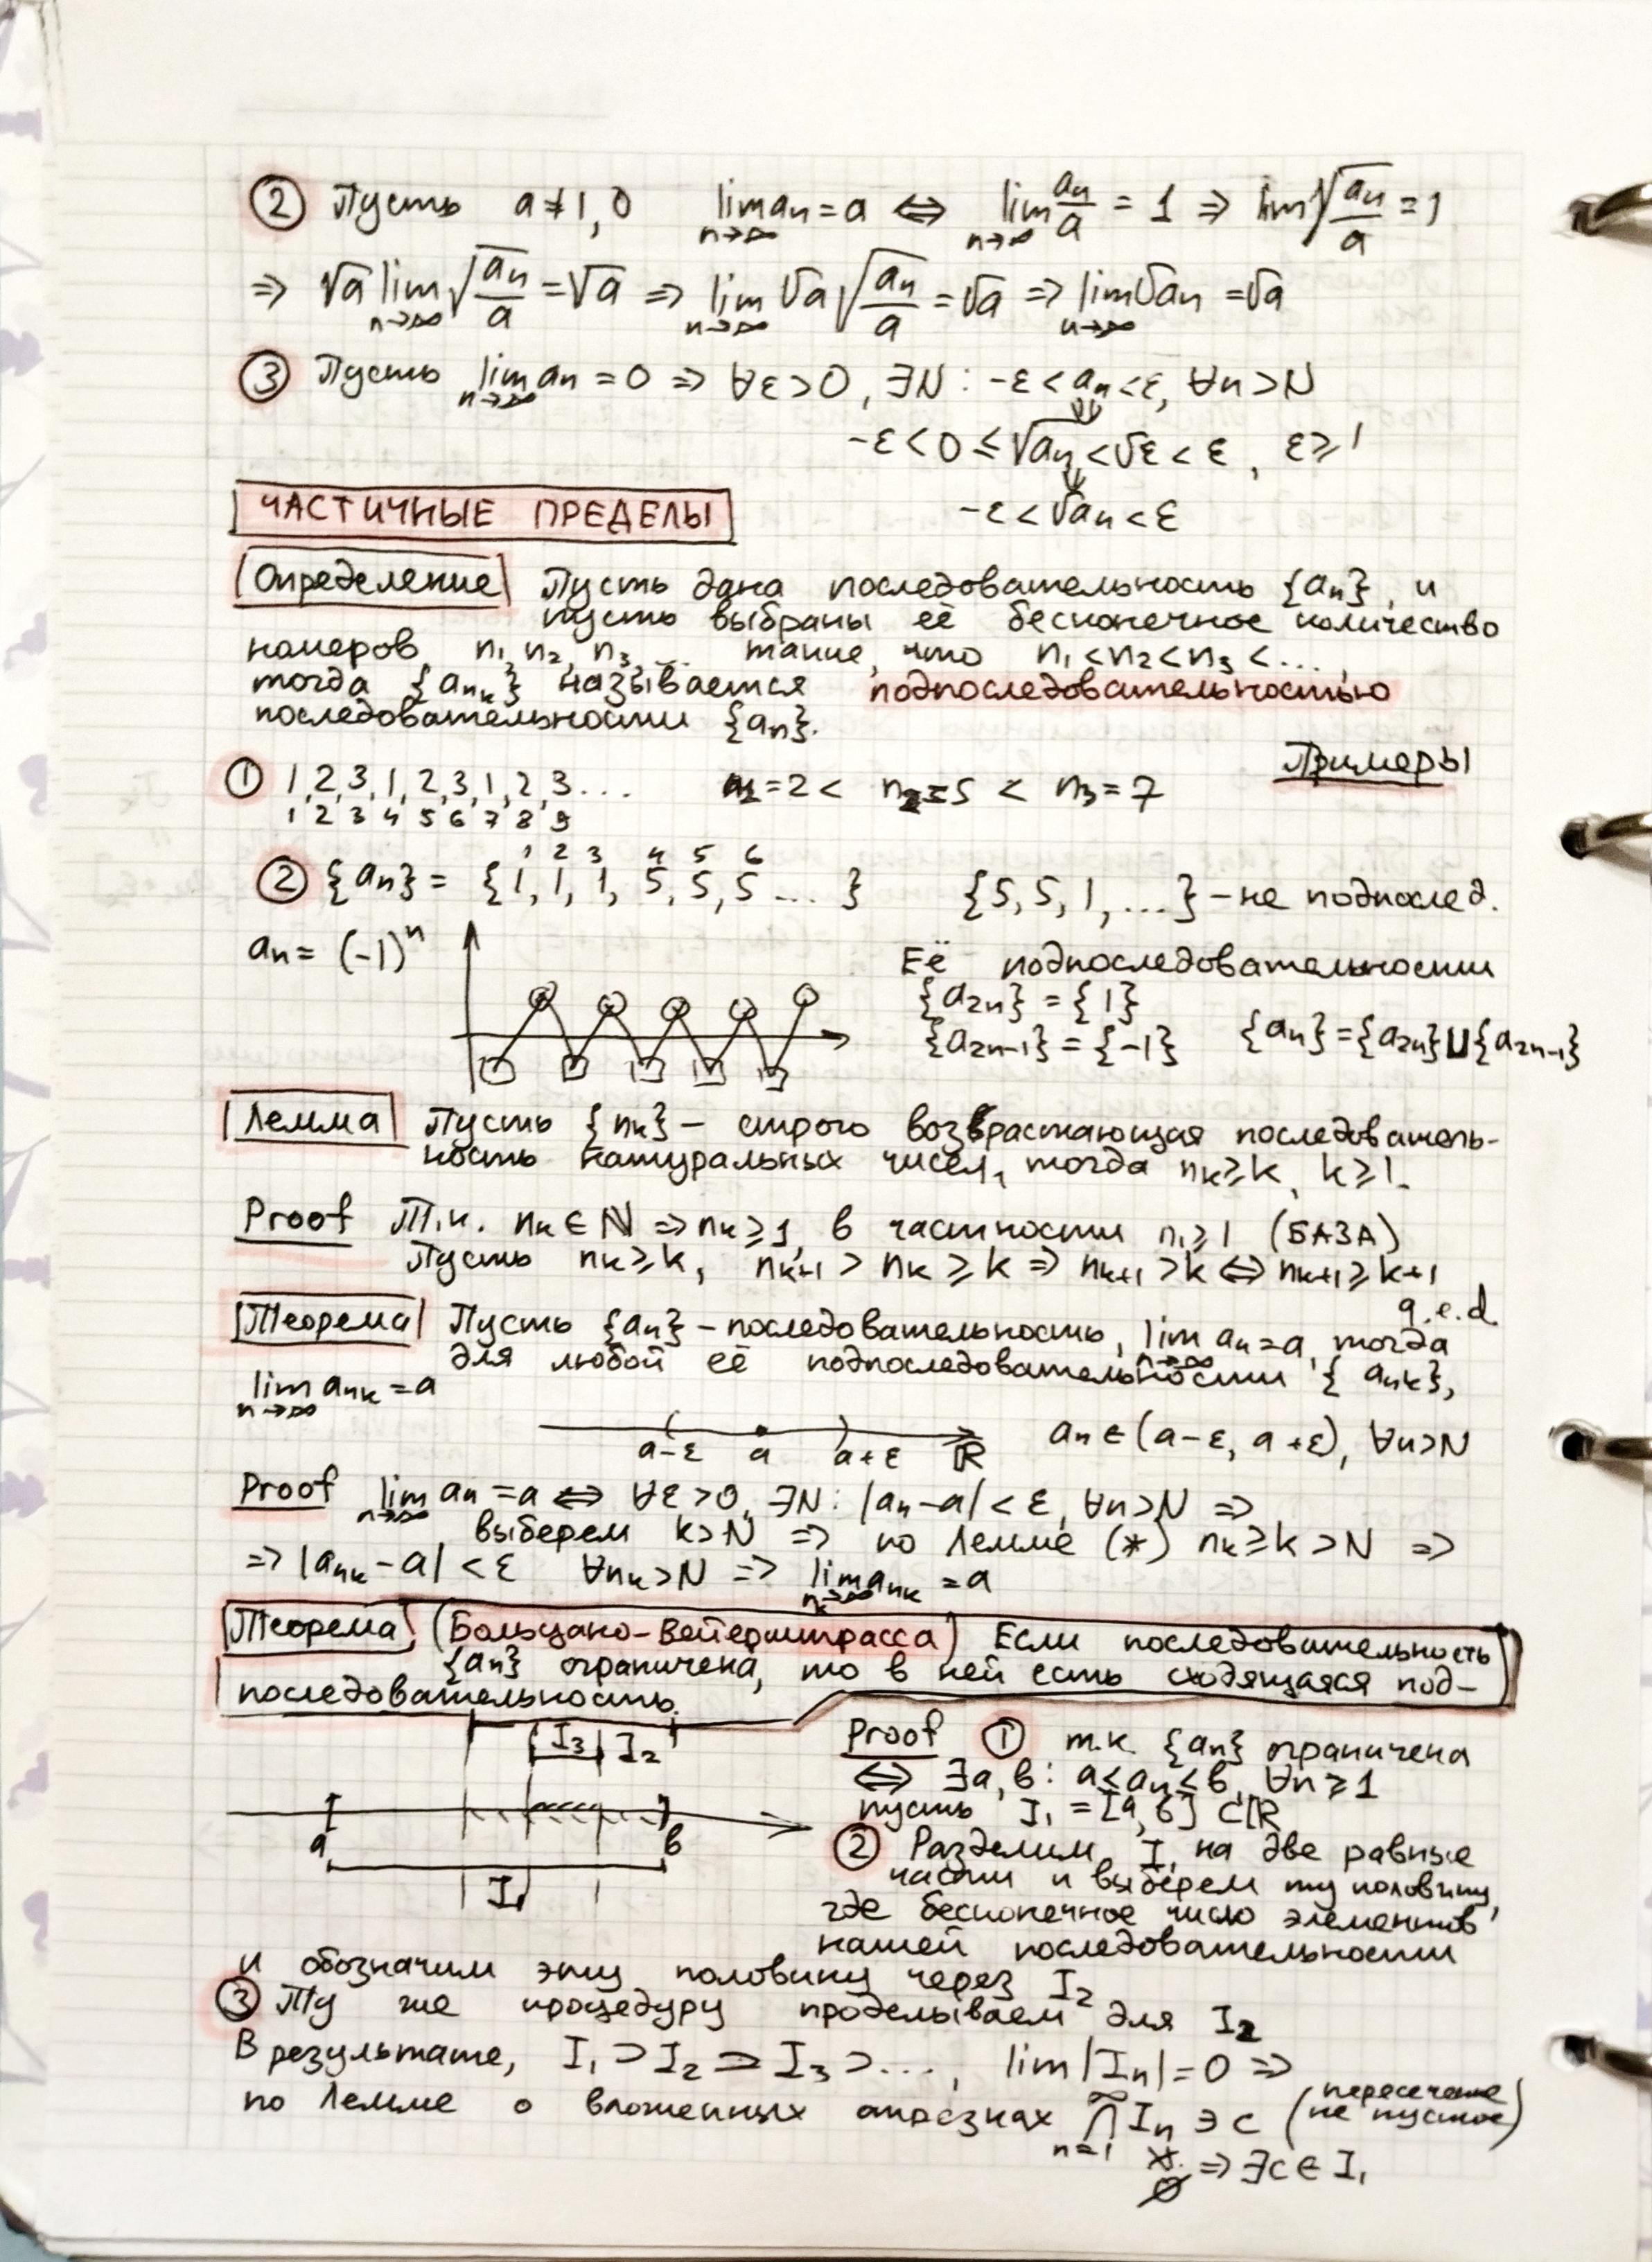 ② Пусть a≠1,0 lim aₙ = a ⇔ lim aₙ/a = 1 ⇒ lim √(aₙ/a) = 1
n→∞ n→∞
⇒ √a lim √(aₙ/a) = √a ⇒ lim √a √(aₙ/a) = √a ⇒ lim √aₙ = √a
n→∞ n→∞ n→∞
③ Пусть lim aₙ = 0 ⇒ ∀ε>0, ∃N: -ε<aₙ<ε, ∀n>N
n→∞ ⇓
-ε < 0 ≤ √aₙ < √ε < ε, ε≥1
⇓
-ε < √aₙ < ε
ЧАСТИЧНЫЕ ПРЕДЕЛЫ
Определение Пусть дана последовательность {aₙ}, и
пусть выбраны её бесконечное количество
номеров n₁, n₂, n₃, ... такие, что n₁<n₂<n₃<...,
тогда {aₙₖ} называется подпоследовательностью
последовательности {aₙ}.
Примеры
① 1,2,3,1,2,3,1,2,3... n₁=2 < n₂=5 < n₃=7
1 2 3 4 5 6 7 8 9
1 2 3 4 5 6
② {aₙ} = {1, 1, 1, 5, 5, 5 ... } {5, 5, 1, ...} - не подпослед.
aₙ = (-1)ⁿ Её подпоследовательности
{a₂ₙ} = {1}
{a₂ₙ₋₁} = {-1} {aₙ} = {a₂ₙ} ∪ {a₂ₙ₋₁}
Лемма Пусть {nₖ} - строго возврастающая последователь-
ность натуральных чисел, тогда nₖ≥k, k≥1.
Proof Т.к. nₖ∈ℕ ⇒ nₖ≥1, в частности n₁≥1 (БАЗА)
Пусть nₖ≥k, nₖ₊₁ > nₖ ≥ k ⇒ nₖ₊₁ > k ⇔ nₖ₊₁ ≥ k+1
q.e.d.
Теорема Пусть {aₙ} - последовательность, lim aₙ = a, тогда
n→∞
для любой её подпоследовательности {aₙₖ},
lim aₙₖ = a
n→∞
a-ε a a+ε ℝ aₙ ∈ (a-ε, a+ε), ∀n>N
Proof lim aₙ = a ⇔ ∀ε>0, ∃N: |aₙ-a| < ε, ∀n>N ⇒
n→∞
выберем k>N ⇒ по Лемме (*) nₖ≥k>N ⇒
⇒ |aₙₖ-a| < ε ∀nₖ>N ⇒ lim aₙₖ = a
nₖ→∞
Теорема (Больцано-Вейерштрасса) Если последовательность
{aₙ} ограничена, то в ней есть сходящаяся под-
последовательность.
I₃ I₂
a b
I₁
Proof ① т.к. {aₙ} ограничена
⇔ ∃a,b: a≤aₙ≤b, ∀n≥1
пусть I₁ = [a,b] ⊂ ℝ
② Разделим I₁ на две равные
части и выберем ту половину,
где бесконечное число элементов
нашей последовательности
и обозначим эту половину через I₂
③ Ту же процедуру проделываем для I₂
В результате, I₁ ⊃ I₂ ⊃ I₃ ⊃ ..., lim |Iₙ| = 0 ⇒
по Лемме о вложенных отрезках ∞ ⋂ Iₙ ∋ c (пересечение
n=1 не пустое)
∅ ⇒ ∃c ∈ I₁